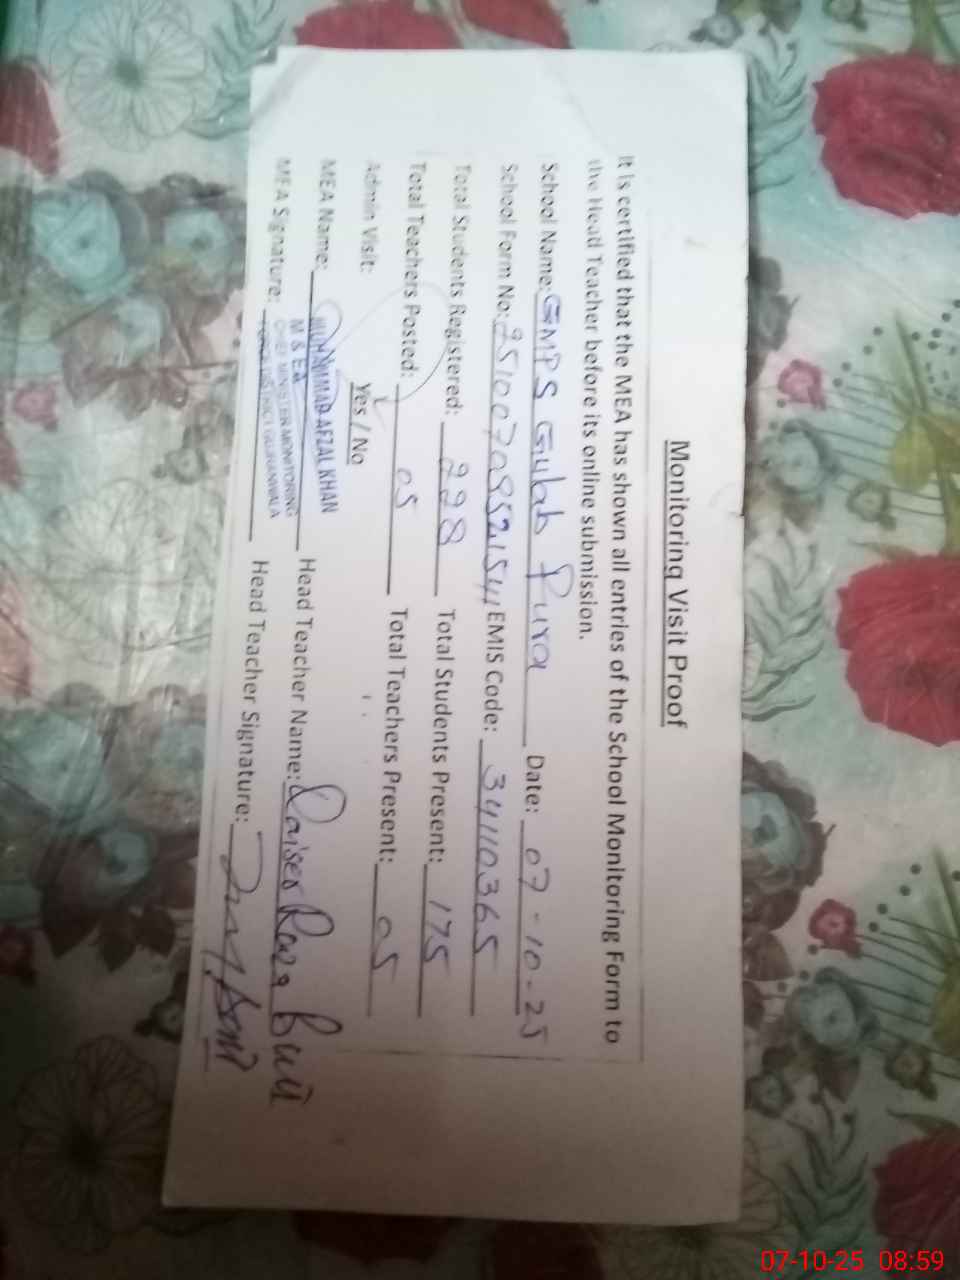 Monitoring Visit Proof
It is certified that the MEA has shown all entries of the School Monitoring Form to
the Head Teacher before its online submission.
School Name: GMPS Gulab Pura Date: 07-10-25
School Form No: 95100709521541 EMIS Code: 34110365
Total Students Registered: 228 Total Students Present: 175
Total Teachers Posted: 05 Total Teachers Present: 05
Admin Visit: Yes / No
MEA Name: MUHAMMAD AFZAL KHAN Head Teacher Name: Qaiser Raza Butt
M & EA
CHIEF MINISTER MONITORING
FORCE DISTRICT GUJRANWALA
MEA Signature: Head Teacher Signature:
07-10-25 08:59